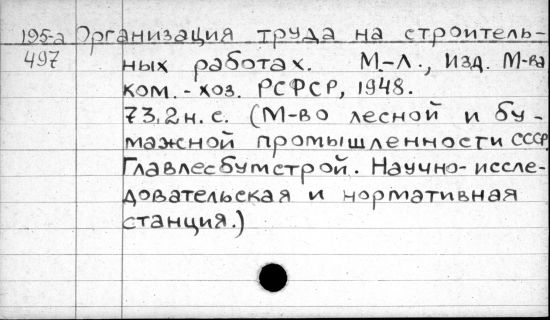 195-а Организация труда на строитель-
497 ных работах. М-Л., Изд. М-ва
ком.-хоз. РСФСР, 1948.
73,2 н. с. (М-во лесной и бу-
мажной промышленности СССР,
Главлесбумстрой. Научно-иссле-
довательская и нормативная
станция.)